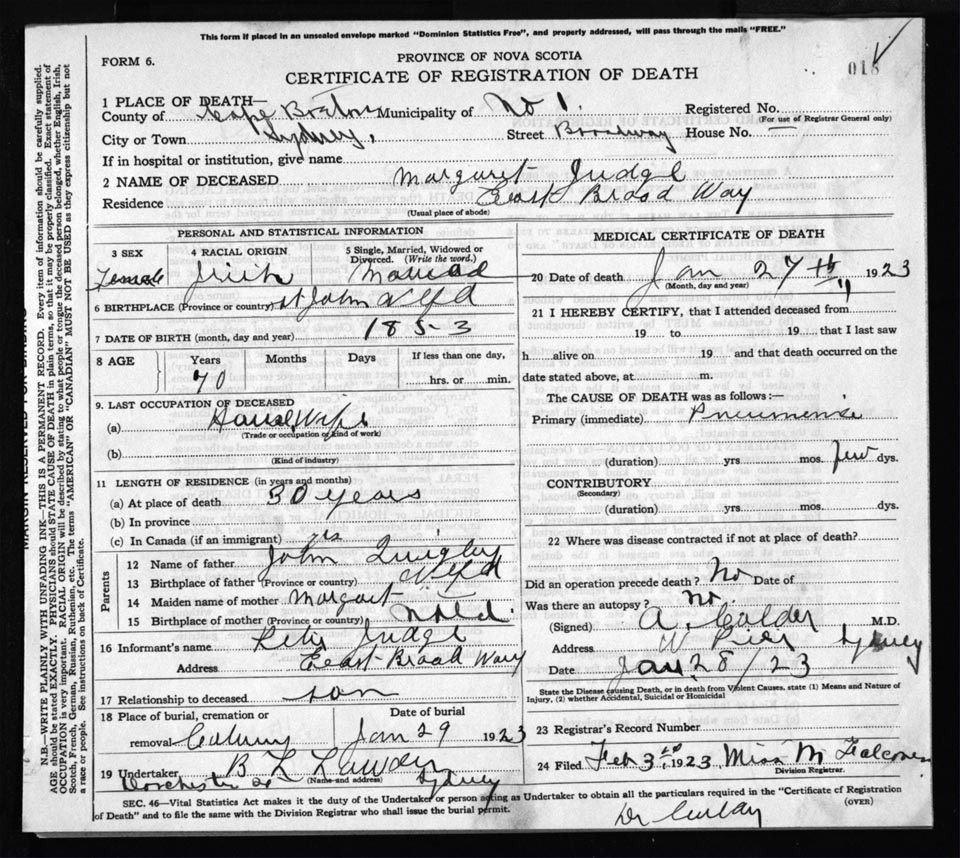 This form if placed in an unsealed envelope marked "Dominion Statistics Free", and properly addressed, will pass through the mails "FREE."
FORM 6.
PROVINCE OF NOVA SCOTIA
CERTIFICATE OF REGISTRATION OF DEATH
018
1 PLACE OF DEATH—
County of Cape Breton Municipality of No 1. Registered No.
(For use of Registrar General only)
City or Town Sydney, Street Broadway House No. —
If in hospital or institution, give name
2 NAME OF DECEASED Margaret Judge
Residence East Broad Way
(Usual place of abode)
PERSONAL AND STATISTICAL INFORMATION
3 SEX Female
4 RACIAL ORIGIN Irish
5 Single, Married, Widowed or Divorced. (Write the word.) Married
6 BIRTHPLACE (Province or country) St John Nfld
7 DATE OF BIRTH (month, day and year) 1853
8 AGE Years 70 Months Days If less than one day, hrs. or min.
9. LAST OCCUPATION OF DECEASED
(a) House Wife
(Trade or occupation or kind of work)
(b)
(Kind of industry)
11 LENGTH OF RESIDENCE (in years and months)
(a) At place of death 30 years
(b) In province
(c) In Canada (if an immigrant) yrs
Parents
12 Name of father John Quigley
13 Birthplace of father (Province or country) Nfld
14 Maiden name of mother Margaret —
15 Birthplace of mother (Province or country) Nfld.
16 Informant's name Peter Judge
Address East Broad Way
17 Relationship to deceased son
18 Place of burial, cremation or removal Calvary
Date of burial Jan 29 1923
19 Undertaker B L
(Name and address)
Dorchester St Sydney
MEDICAL CERTIFICATE OF DEATH
20 Date of death Jan 27th 1923
(Month, day and year)
21 I HEREBY CERTIFY, that I attended deceased from
19 to 19 that I last saw
h alive on 19 and that death occurred on the
date stated above, at m.
The CAUSE OF DEATH was as follows:—
Primary (immediate) Pneumonia
(duration) yrs mos. few dys.
CONTRIBUTORY
(Secondary)
(duration) yrs. mos. dys.
22 Where was disease contracted if not at place of death?
Did an operation precede death? No Date of
Was there an autopsy? no.
(Signed) A. Calder M.D.
Address W Pier Sydney
Date Jan. 28/23
State the Disease causing Death, or in death from Violent Causes, state (1) Means and Nature of
Injury, (2) whether Accidental, Suicidal or Homicidal
23 Registrar's Record Number
24 Filed Feb 3rd 1923 Miss M Falconer
Division Registrar.
SEC. 46—Vital Statistics Act makes it the duty of the Undertaker or person acting as Undertaker to obtain all the particulars required in the "Certificate of Registration
of Death" and to file the same with the Division Registrar who shall issue the burial permit. (OVER)
Dr
MARGIN RESERVED FOR BINDING
N.B.—WRITE PLAINLY WITH UNFADING INK—THIS IS A PERMANENT RECORD. Every item of information should be carefully supplied.
AGE should be stated EXACTLY. PHYSICIANS should STATE CAUSE OF DEATH in plain terms, so that it may be properly classified. Exact statement of
OCCUPATION is very important. RACIAL ORIGIN will be described by stating to what people or tongue the deceased person belonged, whether English, Irish,
Scotch, French, German, Russian, Ruthenian, etc. The terms "AMERICAN" OR "CANADIAN" MUST NOT BE USED as they express citizenship but not
a race or people. See instructions on back of Certificate.